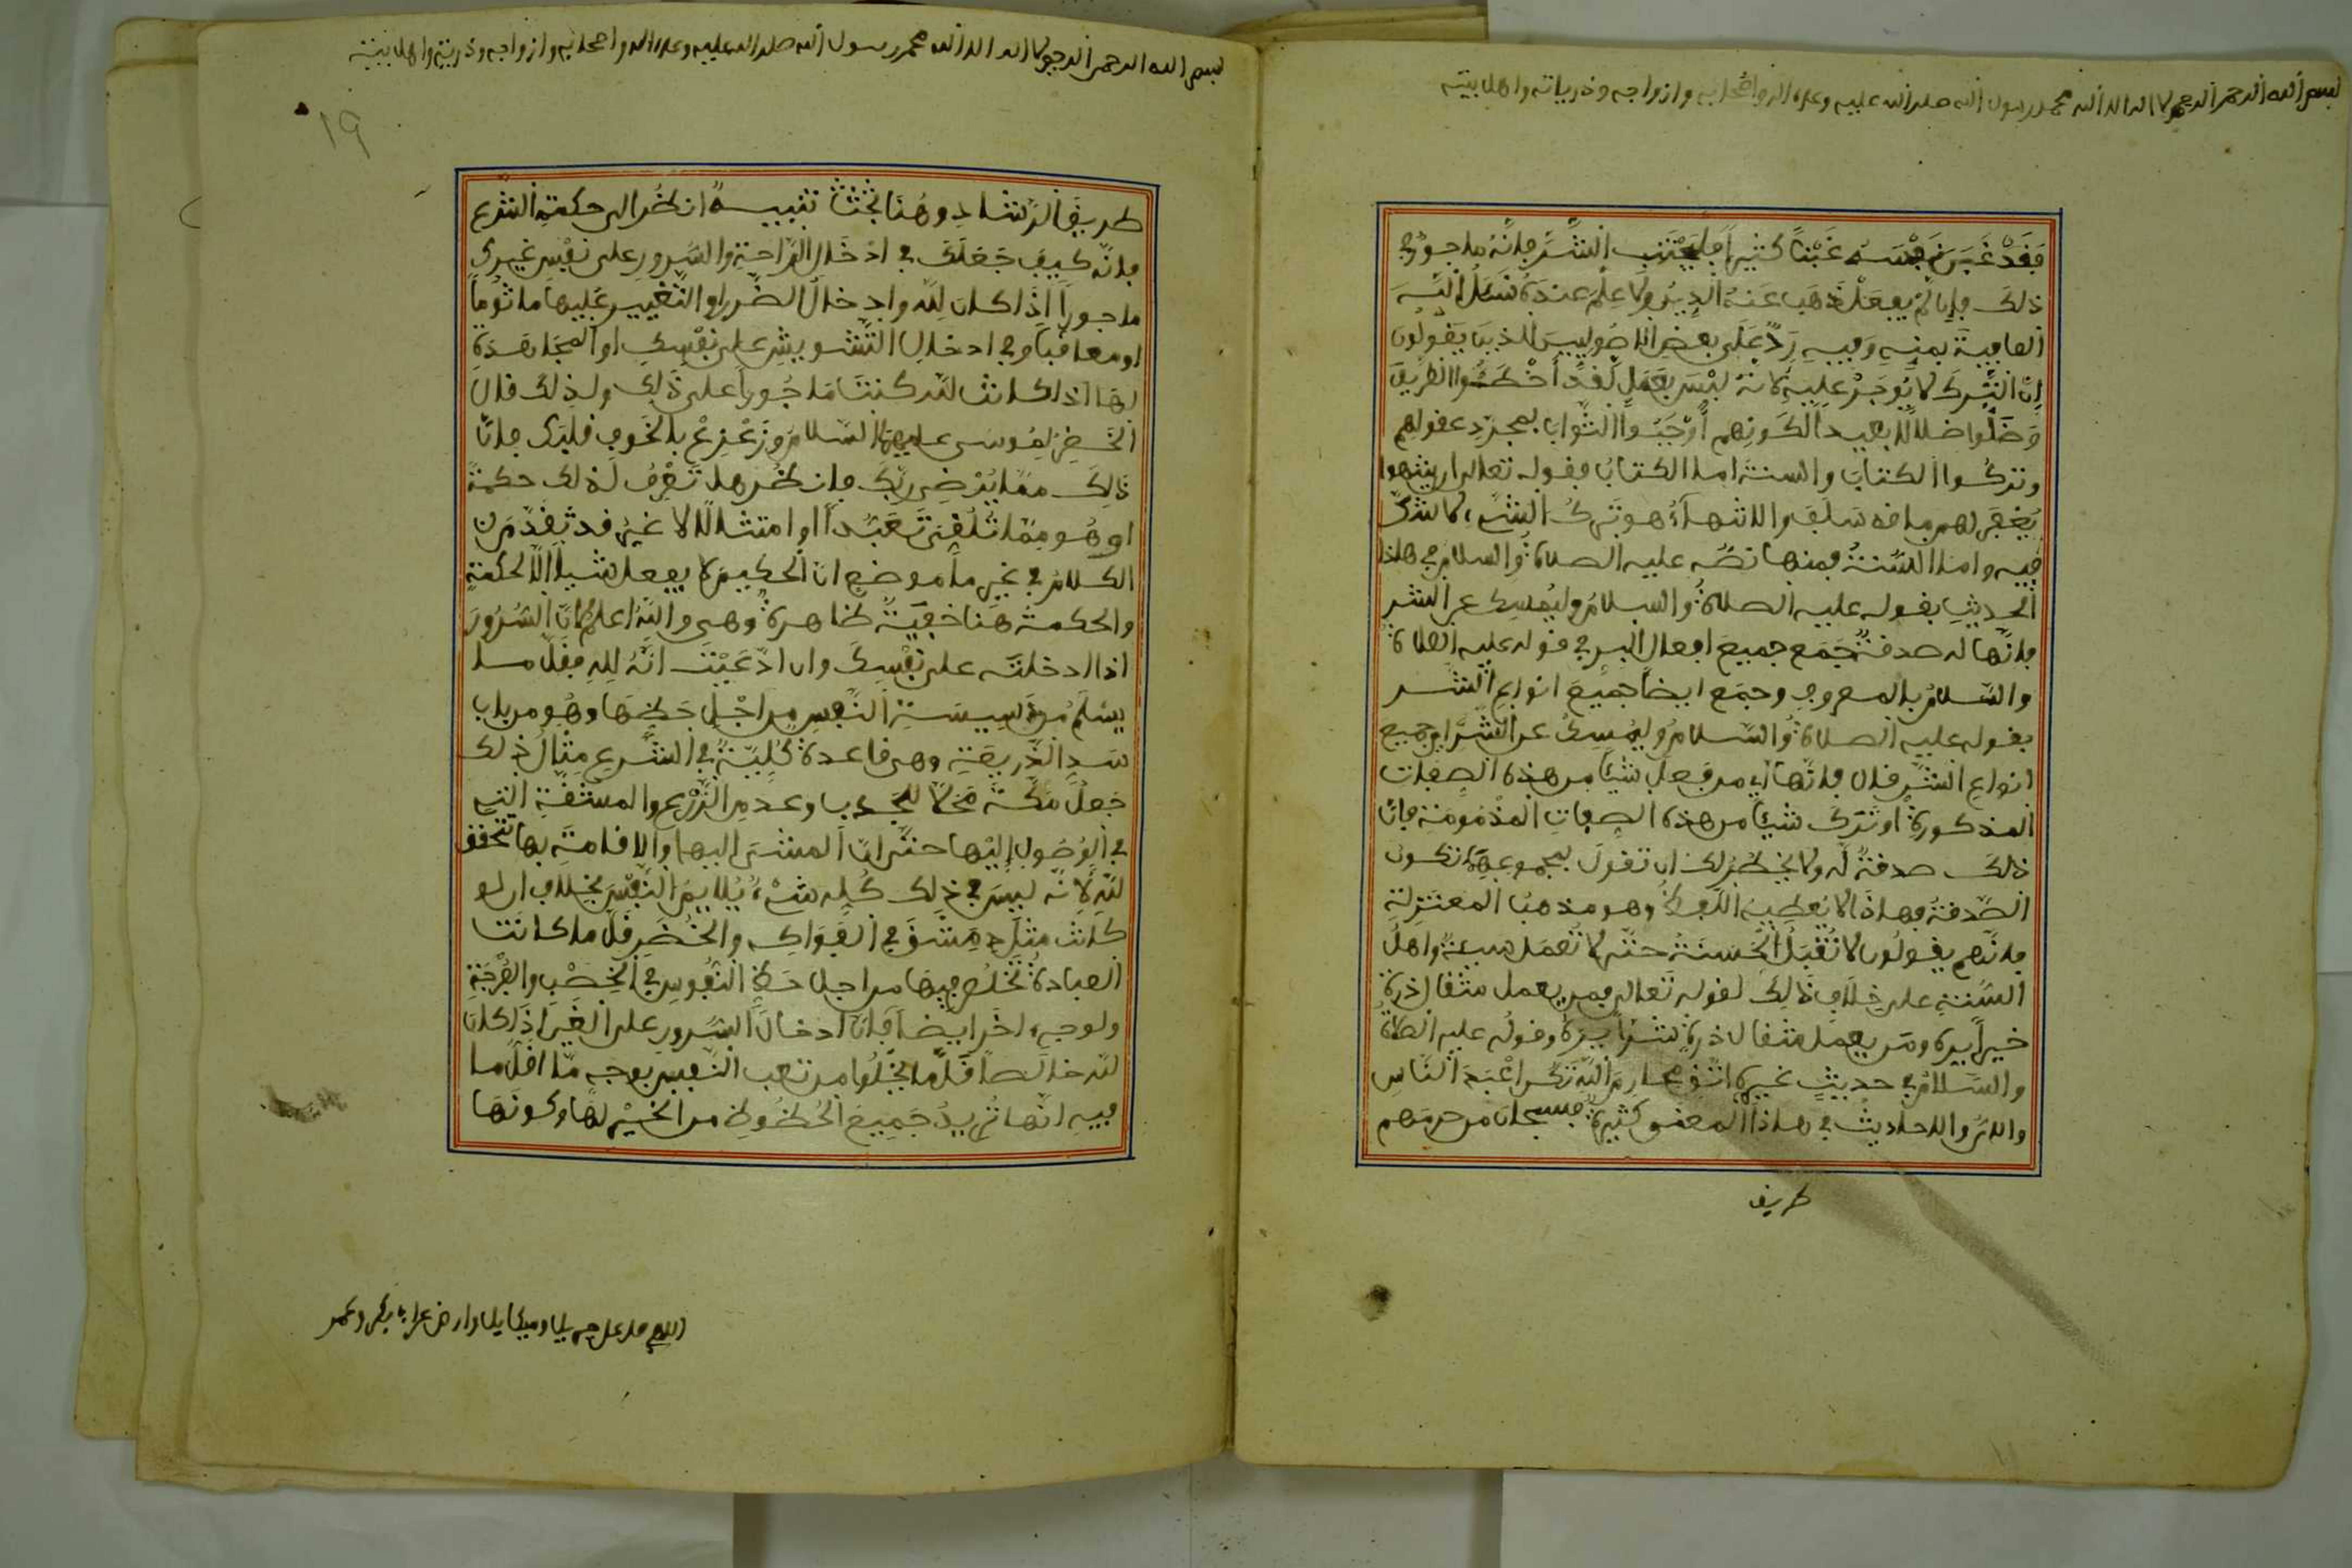 بسم الله الرحمن الرحيم لا اله الا الله محمد رسول الله صلى الله عليه وعلى اله واصحابه وازواجه وذرياته واهل بيته
فقد غبن نفسه غبنا كثيرا فليجتنب الشر فانه ماجور في
ذلك فان لم يفعل ذهب عنه الدين ولا علم عنده نسئل الله
العافية بمنه وفيه رد على بعض الاصوليين الذين يقولون
ان الترك لا يوجر عليه لانه ليس بعمل لقد اخطئوا الطريق
وضلوا ضلالا بعيدا لكونهم اوجبوا الثواب بمجرد عقولهم
وتركوا الكتاب والسنة اما الكتاب فقوله تعالى ان ينتهوا
يغفر لهم ما قد سلف والانتهاء هو ترك الشيء لا شك
فيه واما السنة فمنها نصه عليه الصلاة والسلام في هذا
الحديث بقوله عليه الصلاة والسلام وليمسك عن الشر
فانها له صدقة جمع جميع افعال البر في قوله عليه الصلاة
والسلام بالمعروف وجمع ايضا جميع انواع الشر
بقوله عليه الصلاة والسلام وليمسك عن الشر اي جميع
انواع الشر فان فانها اي من فعل شيئا من هذه الصفات
المذكورة او ترك شيئا من هذه الصفات المذمومة فان
ذلك صدقة له ولا يخطر لك ان تقول بمجموعها تكون
الصدقة فهاذا لا يعطيه اللفظ وهو مذهب المعتزلة
فانهم يقولون لا تقبل الحسنة حتى لا تعمل سيئة واهل
السنة على خلاف ذلك لقوله تعالى فمن يعمل مثقال ذرة
خيرا يره ومن يعمل مثقال ذرة شرا يره وقوله عليه الصلاة
والسلام في حديث غيره اتق محارم الله تكن اعبد الناس
والاي والاحاديث في هاذا المعنى كثيرة فسبحان من حرمهم
طريق
بسم الله الرحمن الرحيم لا اله الا الله محمد رسول الله صلى الله عليه وعلى اله واصحابه وازواجه وذريته واهل بيته
١٩
طريق الرشاد وهنا بحث تنبيه انظر الى حكمة الشرع
فانه كيف جعلك في ادخال الراحة والسرور على نفس غيرك
ماجورا اذا كان لله وادخال الضرر او التغيير عليها ماثوما
او معاقبا وفي ادخال التشويش على نفسك او المجاهدة
لها اذا كانت لله كنت ماجورا على ذلك ولذلك قال
الخضر لموسى عليهما السلام وزعزع بالخوف قلبك فان
ذلك مما يرضي ربك فانظر هل تعرف لذلك حكمة
او هو مما تلقي تعبدا او امتثالا لا غير قد تقدم من
الكلام في غير ما موضع ان الحكيم لا يفعل شيئا الا لحكمة
والحكمة هنا خفية ظاهرة وهي والله اعلم لان السرور
اذا ادخلته على نفسك وان ادعيت انه لله فقل ما
يسلم من دسيسة النفس من اجل حظها وهو من باب
سد الذريعة وهي قاعدة كلية في الشرع مثال ذلك
جعل مكة محلا للجدب وعدم الزرع والمشقة التي
في الوصول اليها حتى ان المشي اليها والاقامة بها تتحقق
لله لانه ليس في ذلك كله شيء يلايم النفس بخلاف ان لو
كانت مثل دمشق في الفواكه والخضر قل ما كانت
العبادة تخلص فيها من اجل حظ النفوس في الخصب والفرجة
ولوجه اخر ايضا فان ادخال السرور على الغير اذا كان
لله خالصا قل ما يخلوا من تعب النفس بوجه ما اقل ما
فيه انها تريد جميع الحظوظ من الخير لها وكونها
اللهم صل على جبريل وميكايل وارض عن ابا بكر وعمر